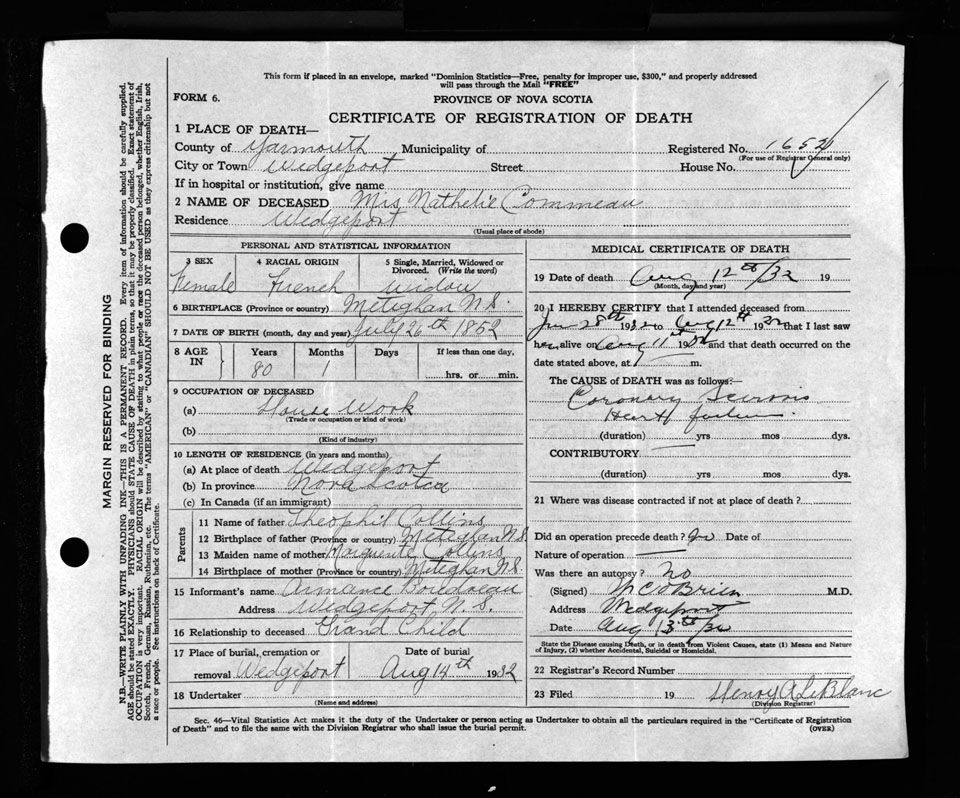 This form if placed in an envelope, marked "Dominion Statistics—Free, penalty for improper use, $300," and properly addressed
will pass through the Mail "FREE"
FORM 6.
PROVINCE OF NOVA SCOTIA
CERTIFICATE OF REGISTRATION OF DEATH
1 PLACE OF DEATH—
County of Yarmouth Municipality of Registered No. 1652
(For use of Registrar General only)
City or Town Wedgeport Street House No.
If in hospital or institution, give name
2 NAME OF DECEASED Mis Nathelie Commeau
Residence Wedgeport
(Usual place of abode)
PERSONAL AND STATISTICAL INFORMATION
3 SEX 4 RACIAL ORIGIN 5 Single, Married, Widowed or
Divorced. (Write the word)
Female French widow
6 BIRTHPLACE (Province or country) Meteghan N.S.
7 DATE OF BIRTH (month, day and year) July 26th 1852
8 AGE IN Years Months Days If less than one day,
80 1 hrs. or min.
9 OCCUPATION OF DECEASED
(a) House Work
(Trade or occupation or kind of work)
(b)
(Kind of industry)
10 LENGTH OF RESIDENCE (in years and months)
(a) At place of death Wedgeport
(b) In province Nova Scotia
(c) In Canada (if an immigrant)
Parents
11 Name of father Theophil Collins
12 Birthplace of father (Province or country) Meteghan N.S.
13 Maiden name of mother Marguerite Collins
14 Birthplace of mother (Province or country) Meteghan N.S.
15 Informant's name Armance
Address Wedgeport N.S.
16 Relationship to deceased Grand Child
17 Place of burial, cremation or Date of burial
removal Wedgeport Aug 14th 1932
18 Undertaker
(Name and address)
MEDICAL CERTIFICATE OF DEATH
19 Date of death Aug 12th/32 19
(Month, day and year)
20 I HEREBY CERTIFY that I attended deceased from
28th 1932 to Aug 12th 1932 that I last saw
her alive on Aug 11th 1932 and that death occurred on the
date stated above, at m.
The CAUSE of DEATH was as follows:
Coronary
Heart failure
(duration) yrs mos dys.
CONTRIBUTORY
(duration) yrs. mos. dys.
21 Where was disease contracted if not at place of death?
Did an operation precede death? no Date of
Nature of operation
Was there an autopsy? no
(Signed) O'Brien M.D.
Address Wedgeport
Date Aug 13th/32
State the Disease causing Death, or in death from Violent Causes, state (1) Means and Nature
of Injury, (2) whether Accidental, Suicidal or Homicidal.
22 Registrar's Record Number
23 Filed 19 Henry A LeBlanc
(Division Registrar)
Sec. 46—Vital Statistics Act makes it the duty of the Undertaker or person acting as Undertaker to obtain all the particulars required in the "Certificate of Registration
of Death" and to file the same with the Division Registrar who shall issue the burial permit.
(OVER)
MARGIN RESERVED FOR BINDING
N.B.—WRITE PLAINLY WITH UNFADING INK—THIS IS A PERMANENT RECORD. Every item of information should be carefully supplied.
AGE should be stated EXACTLY. PHYSICIANS should STATE CAUSE OF DEATH in plain terms, so that it may be properly classified. Exact statement of
OCCUPATION is very important. RACIAL ORIGIN will be described by stating to what people or race the deceased person belonged, whether English, Irish,
Scotch, French, German, Russian, Ruthenian, etc. The terms "AMERICAN" or "CANADIAN" SHOULD NOT BE USED as they express citizenship but not
a race or people. See instructions on back of Certificate.